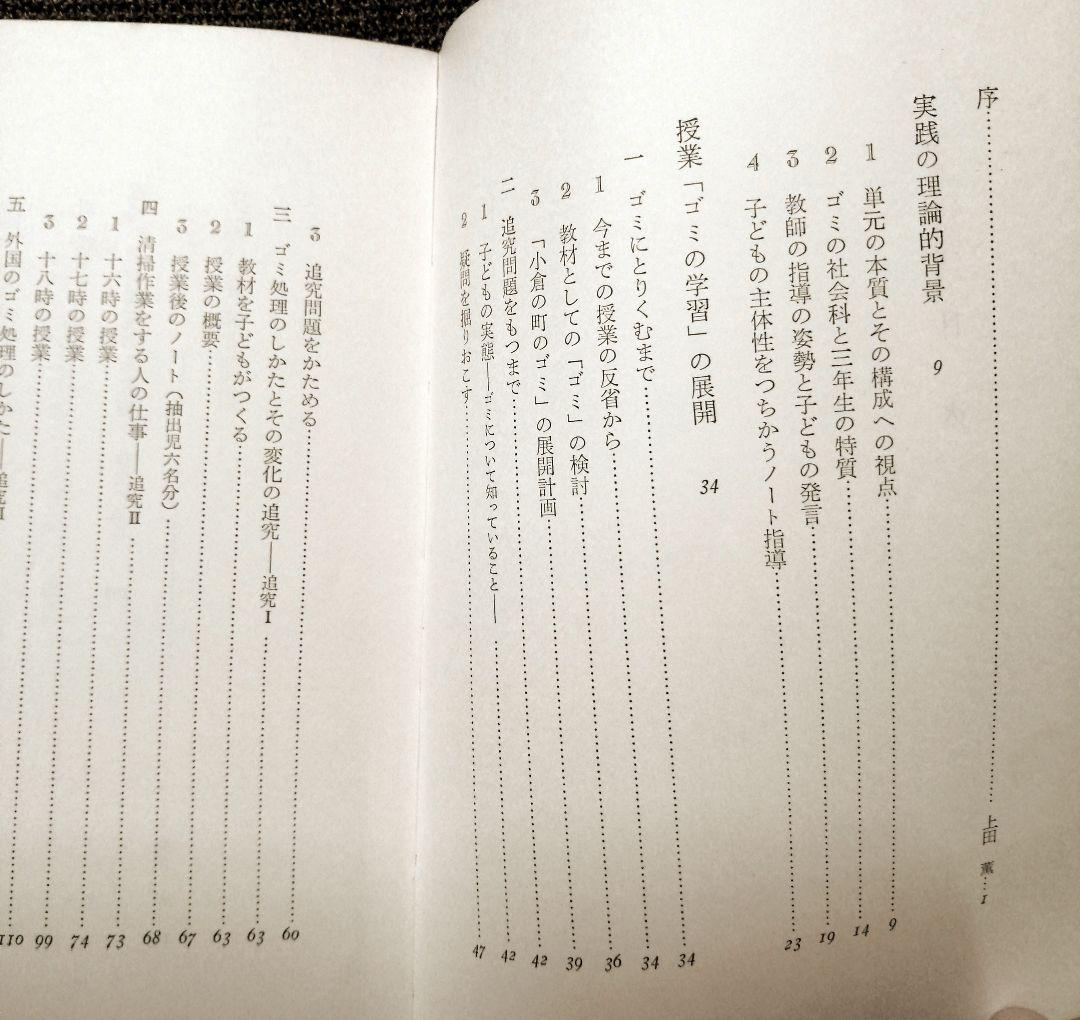 序……上田 薫…1
実践の理論的背景 9
1 単元の本質とその構成への視点……9
2 ゴミの社会科と三年生の特質……14
3 教師の指導の姿勢と子どもの発言……19
4 子どもの主体性をつちかうノート指導……23
授業「ゴミの学習」の展開 34
一 ゴミにとりくむまで……34
1 今までの授業の反省から……34
2 教材としての「ゴミ」の検討……36
3 「小倉の町のゴミ」の展開計画……39
二 追究問題をもつまで……42
1 子どもの実態——ゴミについて知っていること——……42
2 疑問を掘りおこす……47
3 追究問題をかためる……60
三 ゴミ処理のしかたとその変化の追究——追究Ⅰ……63
1 教材を子どもがつくる……63
2 授業の概要……67
3 授業後のノート(抽出児六名分)……68
四 清掃作業をする人の仕事——追究Ⅱ……73
1 十六時の授業……74
2 十七時の授業……99
3 十八時の授業……110
五 外国のゴミ処理のしかた——追究